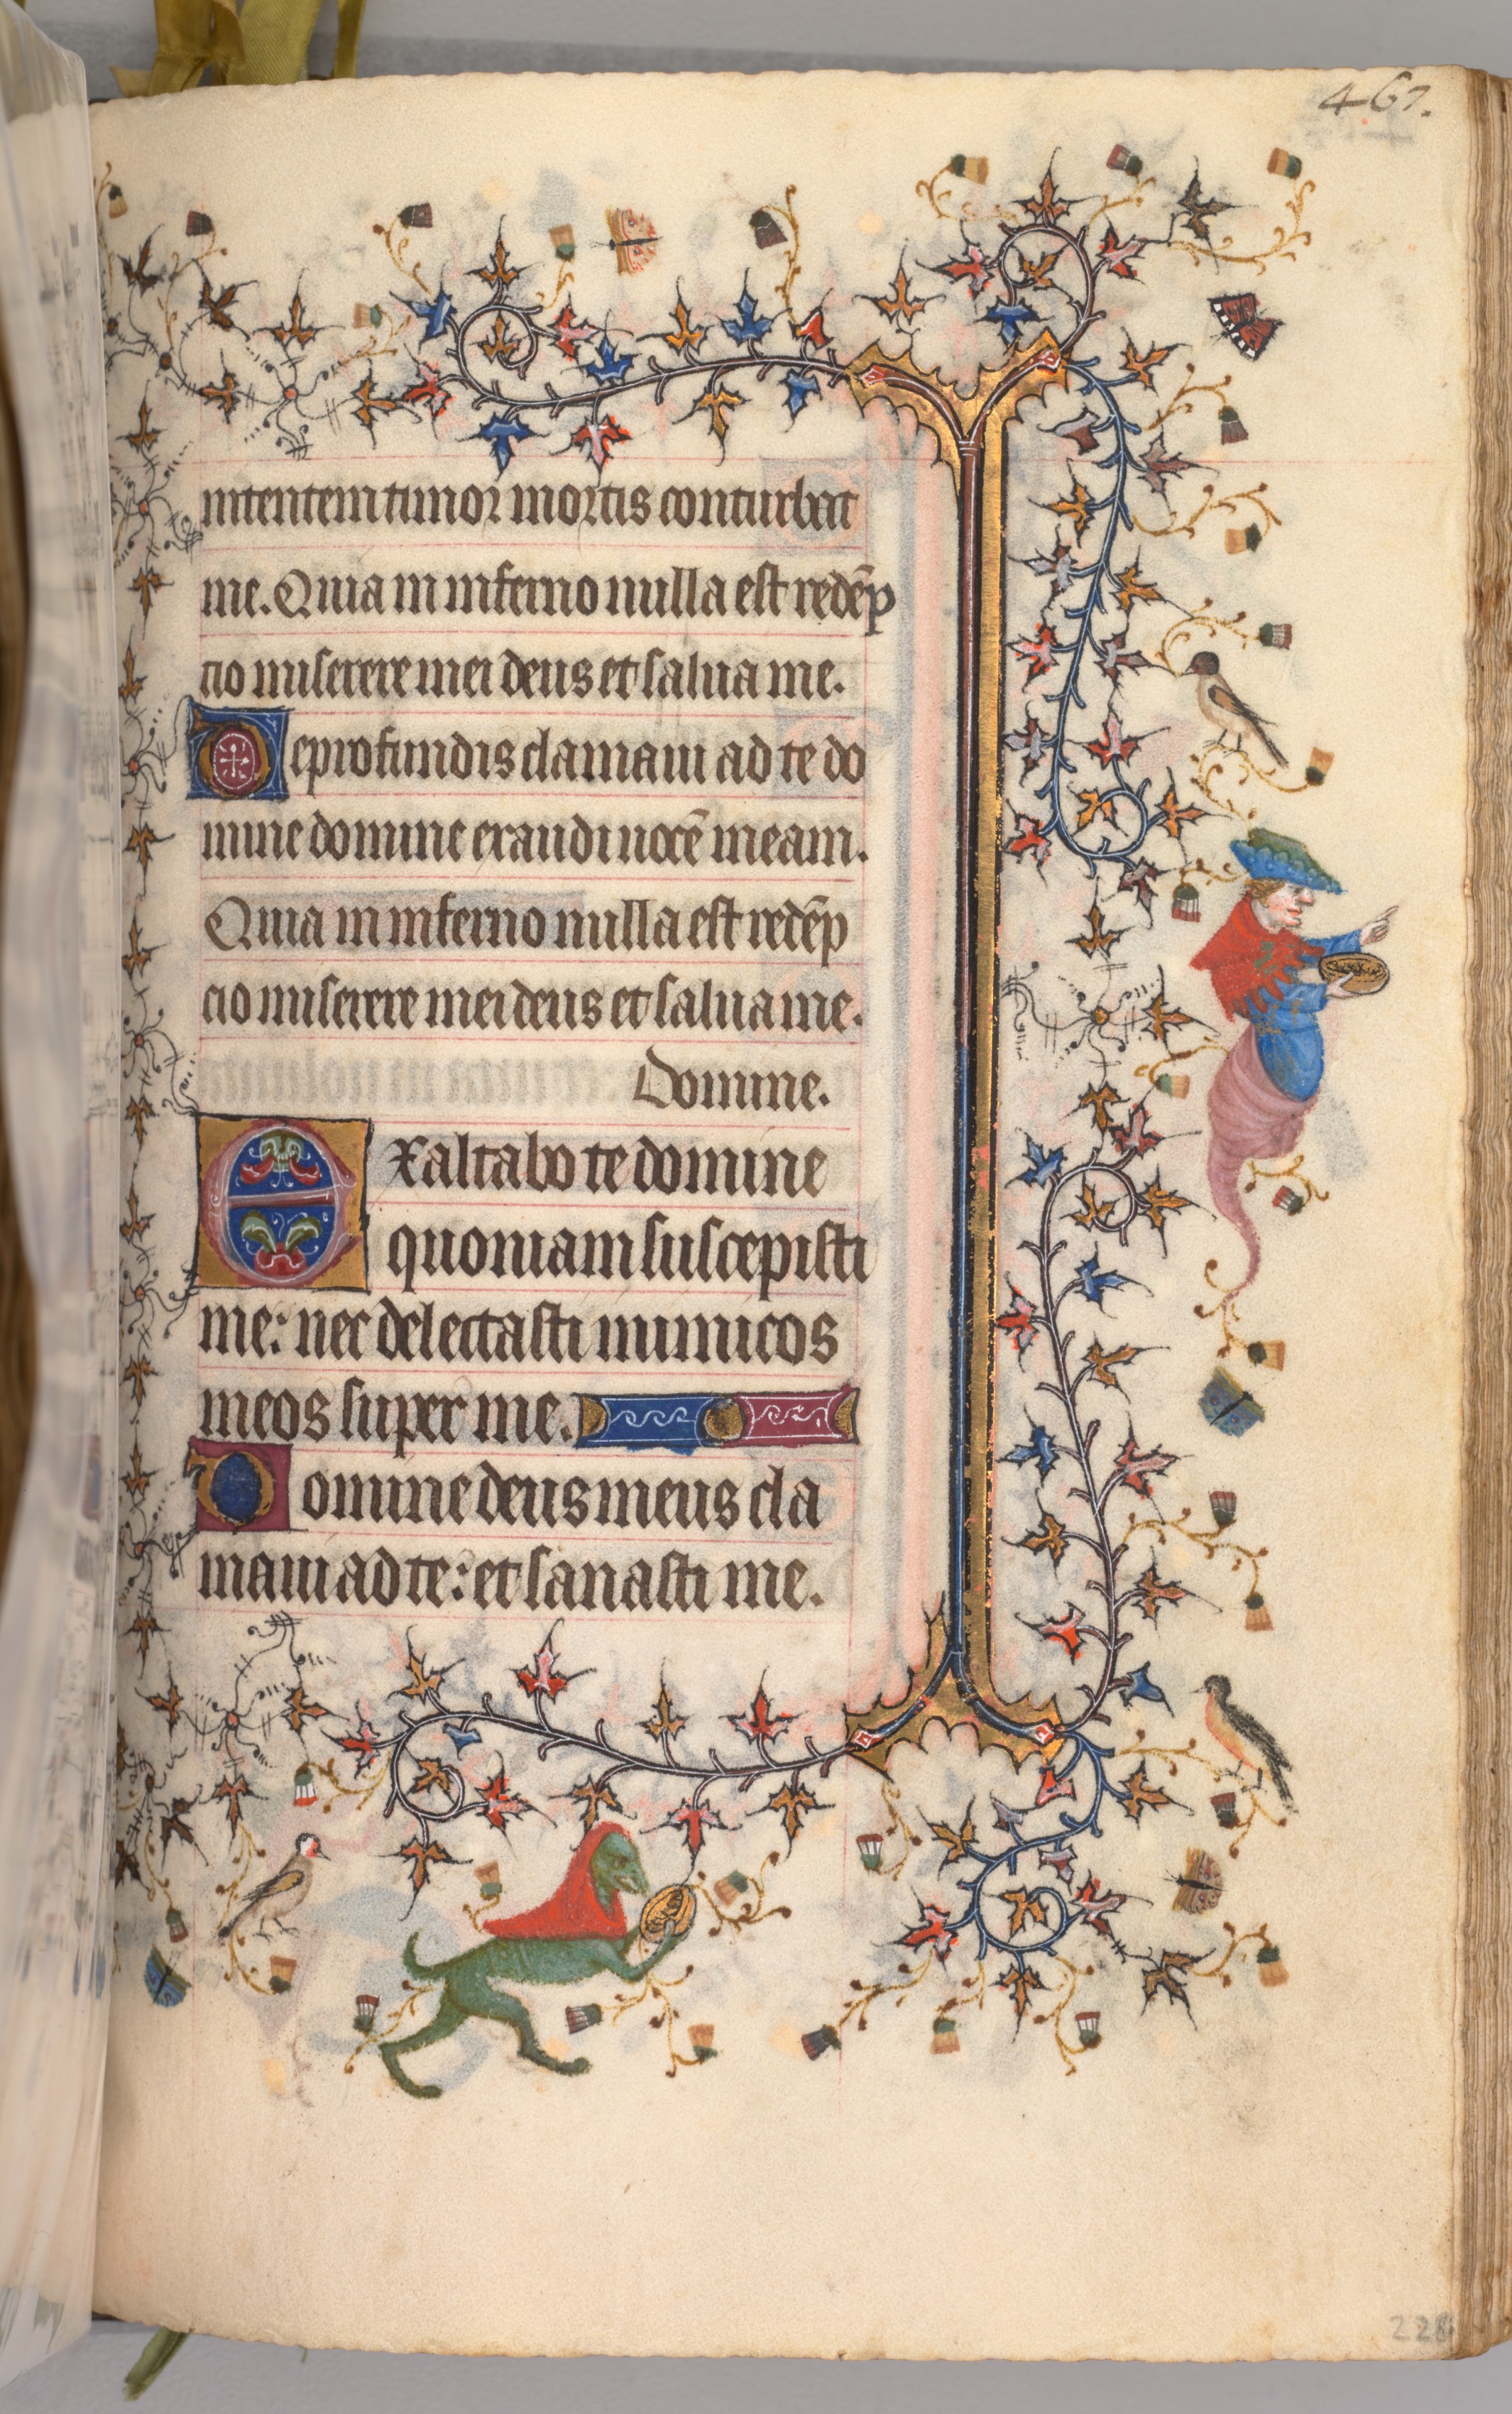 467.
nitentem timor mortis conturbat
me. Quia in inferno nulla est redēp
cio miserere mei deus et salua me.
De profundis clamaui ad te do
mine domine exaudi uocē meam.
Quia in inferno nulla est redēp
cio miserere mei deus et salua me.
Domine.
Exaltabo te domine
quoniam suscepisti
me: nec delectasti inimicos
meos super me.
Domine deus meus cla
maui ad te: et sanasti me.
228